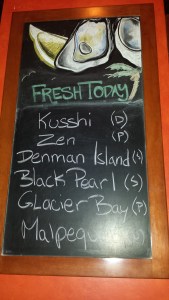 FRESH TODAY
Kusshi (D)
Zen (P)
Denman Island (S)
Black Pearl (S)
Glacier Bay (P)